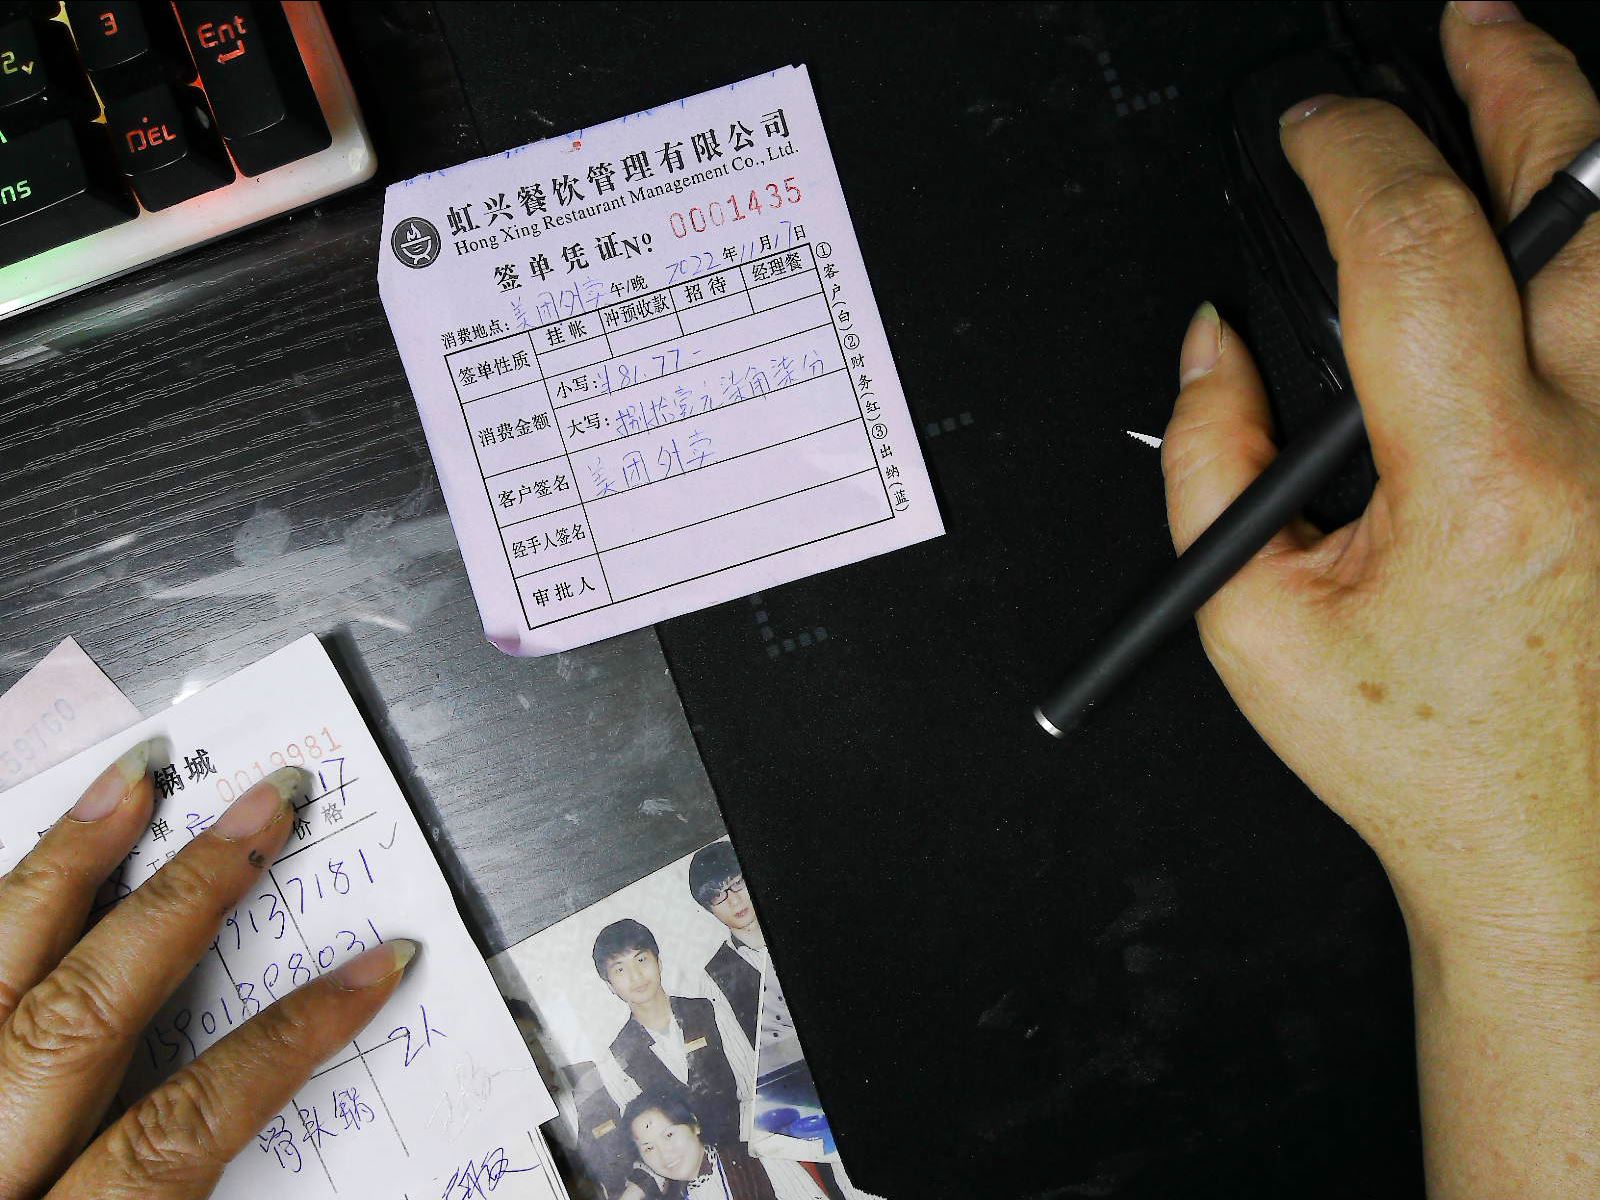 3
Ent
2
DEL
ns
虹兴餐饮管理有限公司
Hong Xing Restaurant Management Co., Ltd.
签单凭证Nº 0001435
消费地点：美团外卖 午/晚 2022年11月17日
签单性质 挂帐 冲预收款 招待 经理餐
消费金额 小写：¥81.77-
大写：捌拾壹元柒角柒分
客户签名 美团外卖
经手人签名
审批人
①客户(白)②财务(红)③出纳(蓝)
59760
锅城
0019981
单
17
价格
9137181
15901898031
2人
骨头锅